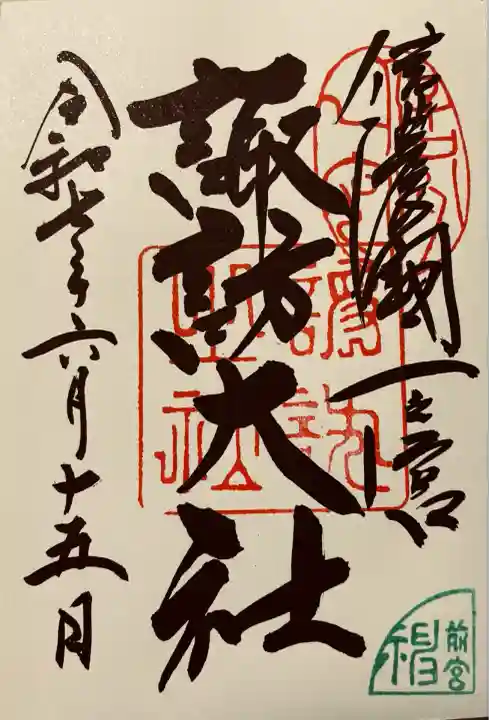 信濃國一之宮
諏訪大社
令和七年六月十五日
諏訪大社
前宮